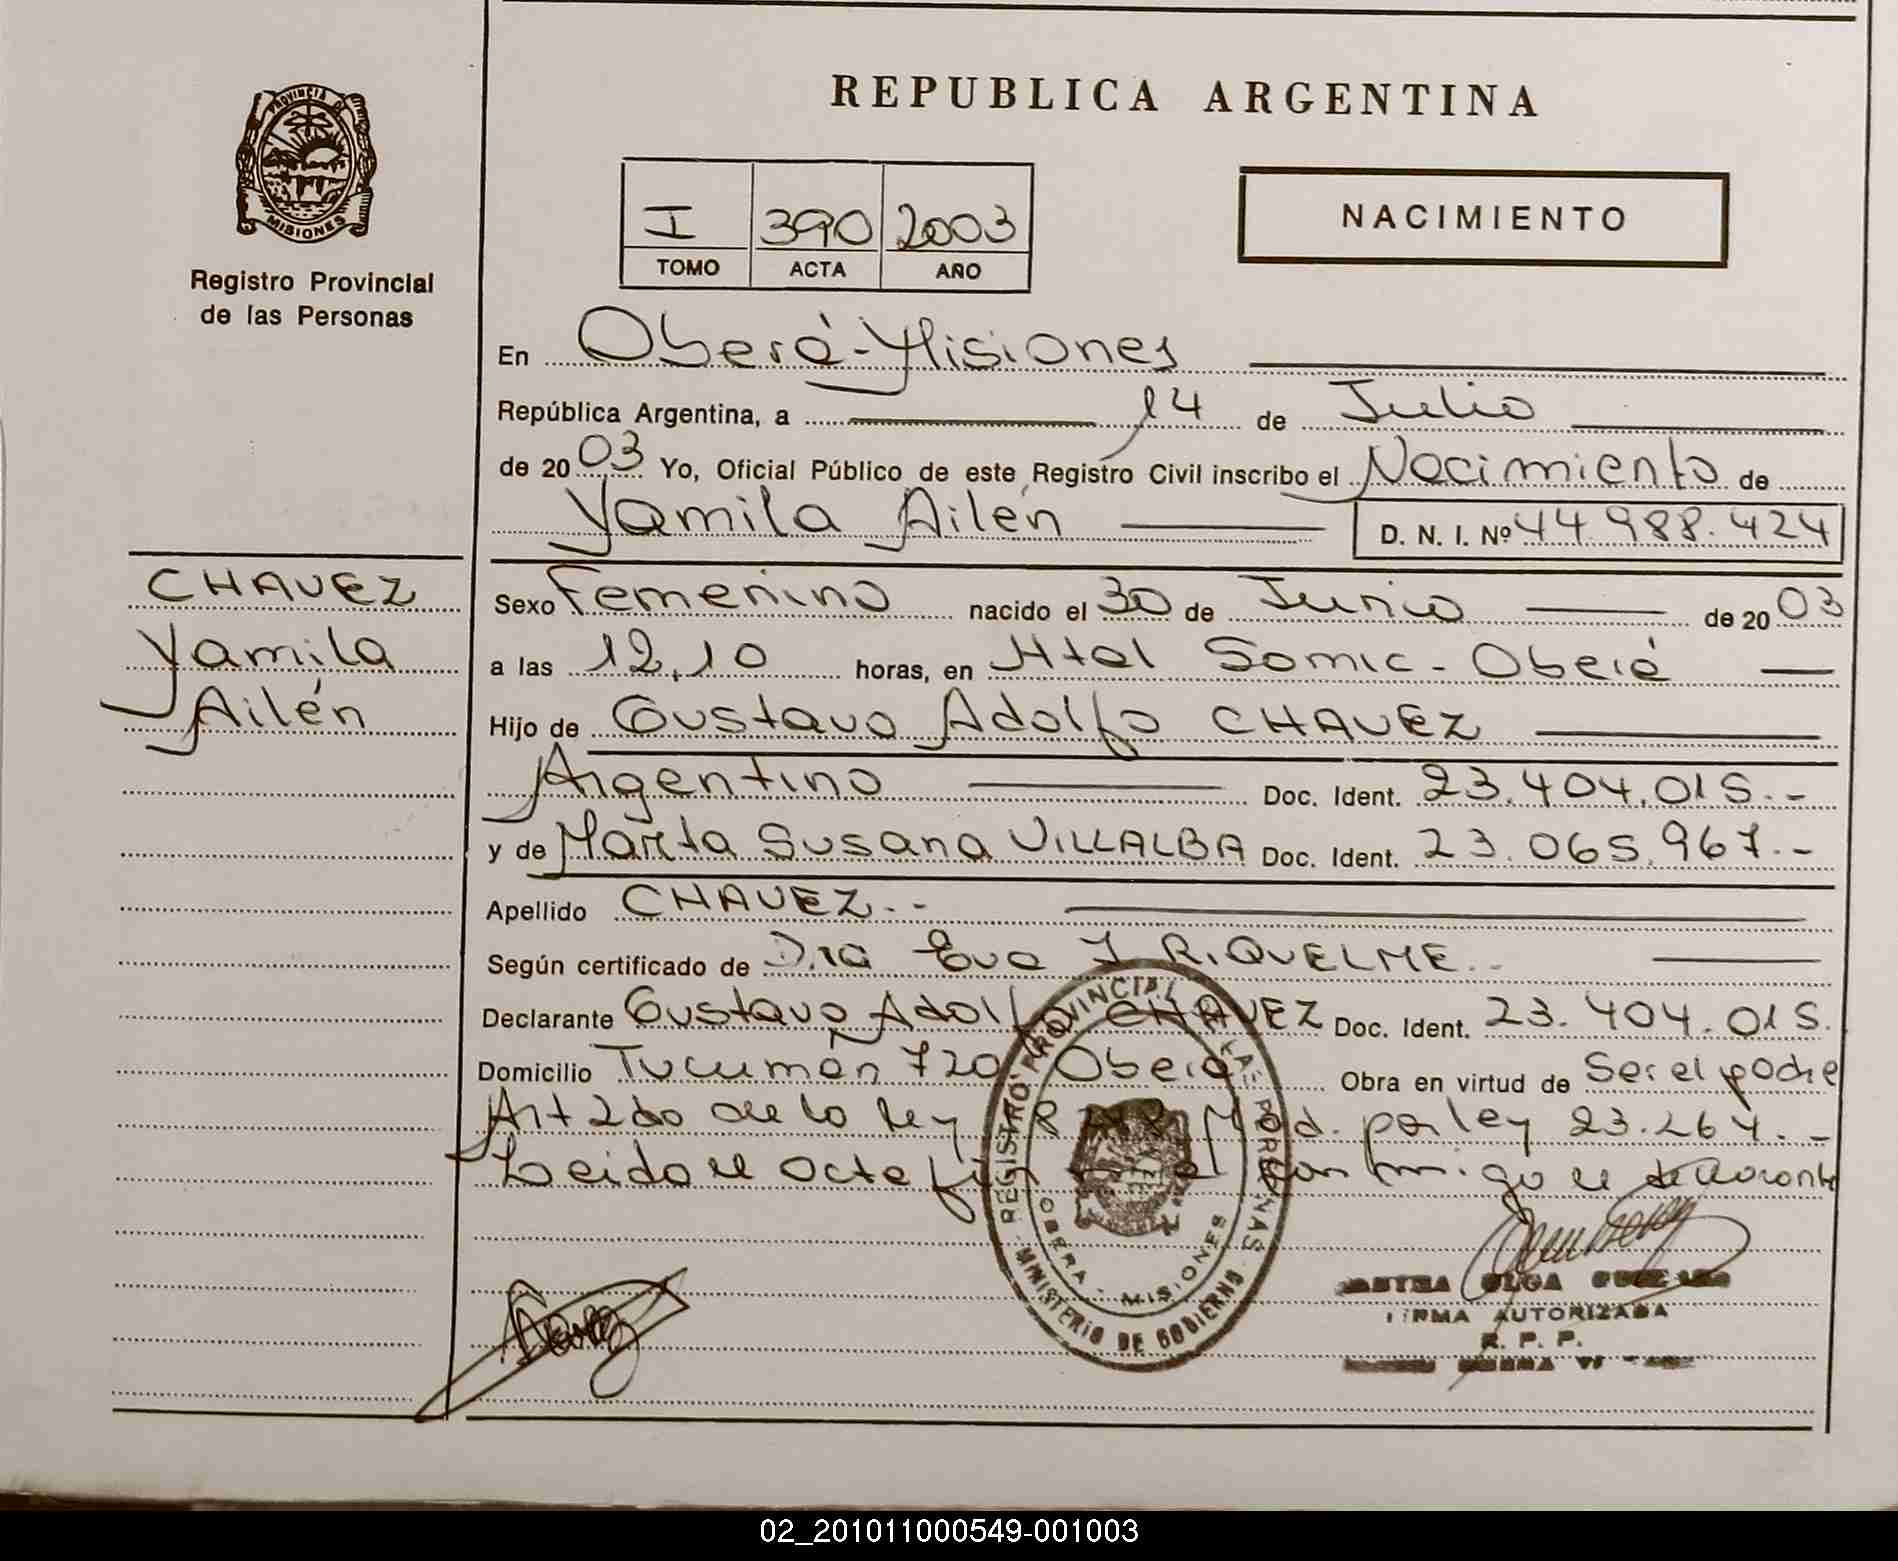 REPUBLICA ARGENTINA
PROVINCIA DE
MISIONES
Registro Provincial
de las Personas
I 390 2003
TOMO ACTA AÑO
NACIMIENTO
En Oberá-Misiones
República Argentina, a 14 de Julio
de 2003 Yo, Oficial Público de este Registro Civil inscribo el Nacimiento de
Yamila Ailén D. N. I. Nº 44.988.424
CHAVEZ
Yamila
Ailén
Sexo Femenino nacido el 30 de Junio de 2003
a las 12,10 horas, en Htal Samic - Oberá
Hijo de Gustavo Adolfo CHAVEZ
Argentino Doc. Ident. 23.404.015.-
y de Marta Susana VILLALBA Doc. Ident. 23.065.967.-
Apellido CHAVEZ.-
Según certificado de Dra Eva J RIQUELME.-
Declarante Gustavo Adolfo CHAVEZ Doc. Ident. 23.404.015.
Domicilio Tucumán 720 Oberá Obra en virtud de Ser el padre
Art 2do de la ley Mod. por ley 23.264.-
Leida el acta conmigo el declarante
REGISTRO PROVINCIAL DE LAS PERSONAS
OBERA - MISIONES
MINISTERIO DE GOBIERNO
OLGA
FIRMA AUTORIZADA
R. P. P.
02_201011000549-001003